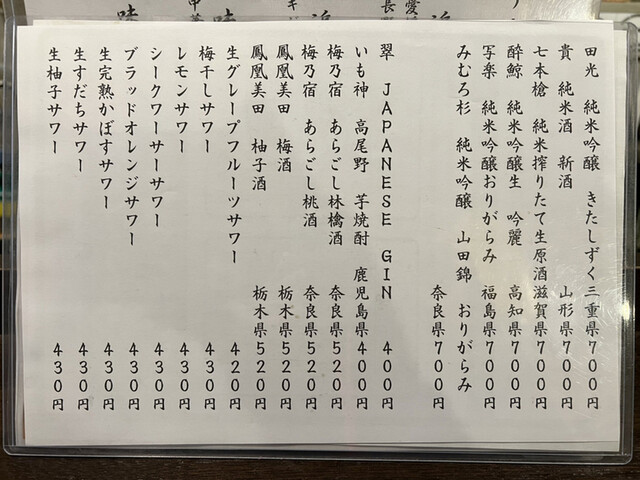 田光　純米吟醸　きたしずく三重県７００円
貴　純米酒　新酒　山形県７００円
七本槍　純米搾りたて生原酒滋賀県７００円
酔鯨　純米吟醸生　吟麗　高知県７００円
写楽　純米吟醸おりがらみ　福島県７００円
みむろ杉　純米吟醸　山田錦　おりがらみ
奈良県７００円
翠　ＪＡＰＡＮＥＳＥ　ＧＩＮ　４００円
いも神　高尾野　芋焼酎　鹿児島県４００円
梅乃宿　あらごし林檎酒　奈良県５２０円
梅乃宿　あらごし桃酒　奈良県５２０円
鳳凰美田　梅酒　栃木県５２０円
鳳凰美田　柚子酒　栃木県５２０円
生グレープフルーツサワー　４２０円
梅干しサワー　４３０円
レモンサワー　４３０円
シークワーサーサワー　４３０円
ブラッドオレンジサワー　４３０円
生完熟かぼすサワー　４３０円
生すだちサワー　４３０円
生柚子サワー　４３０円